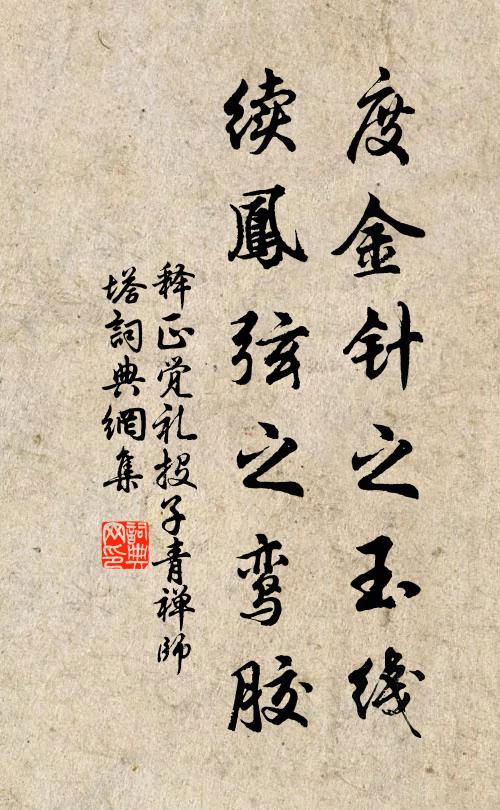 度金针之玉线
续鳳弦之鸾胶
释正觉礼投子青禅师
塔詞典網集
詞典网印